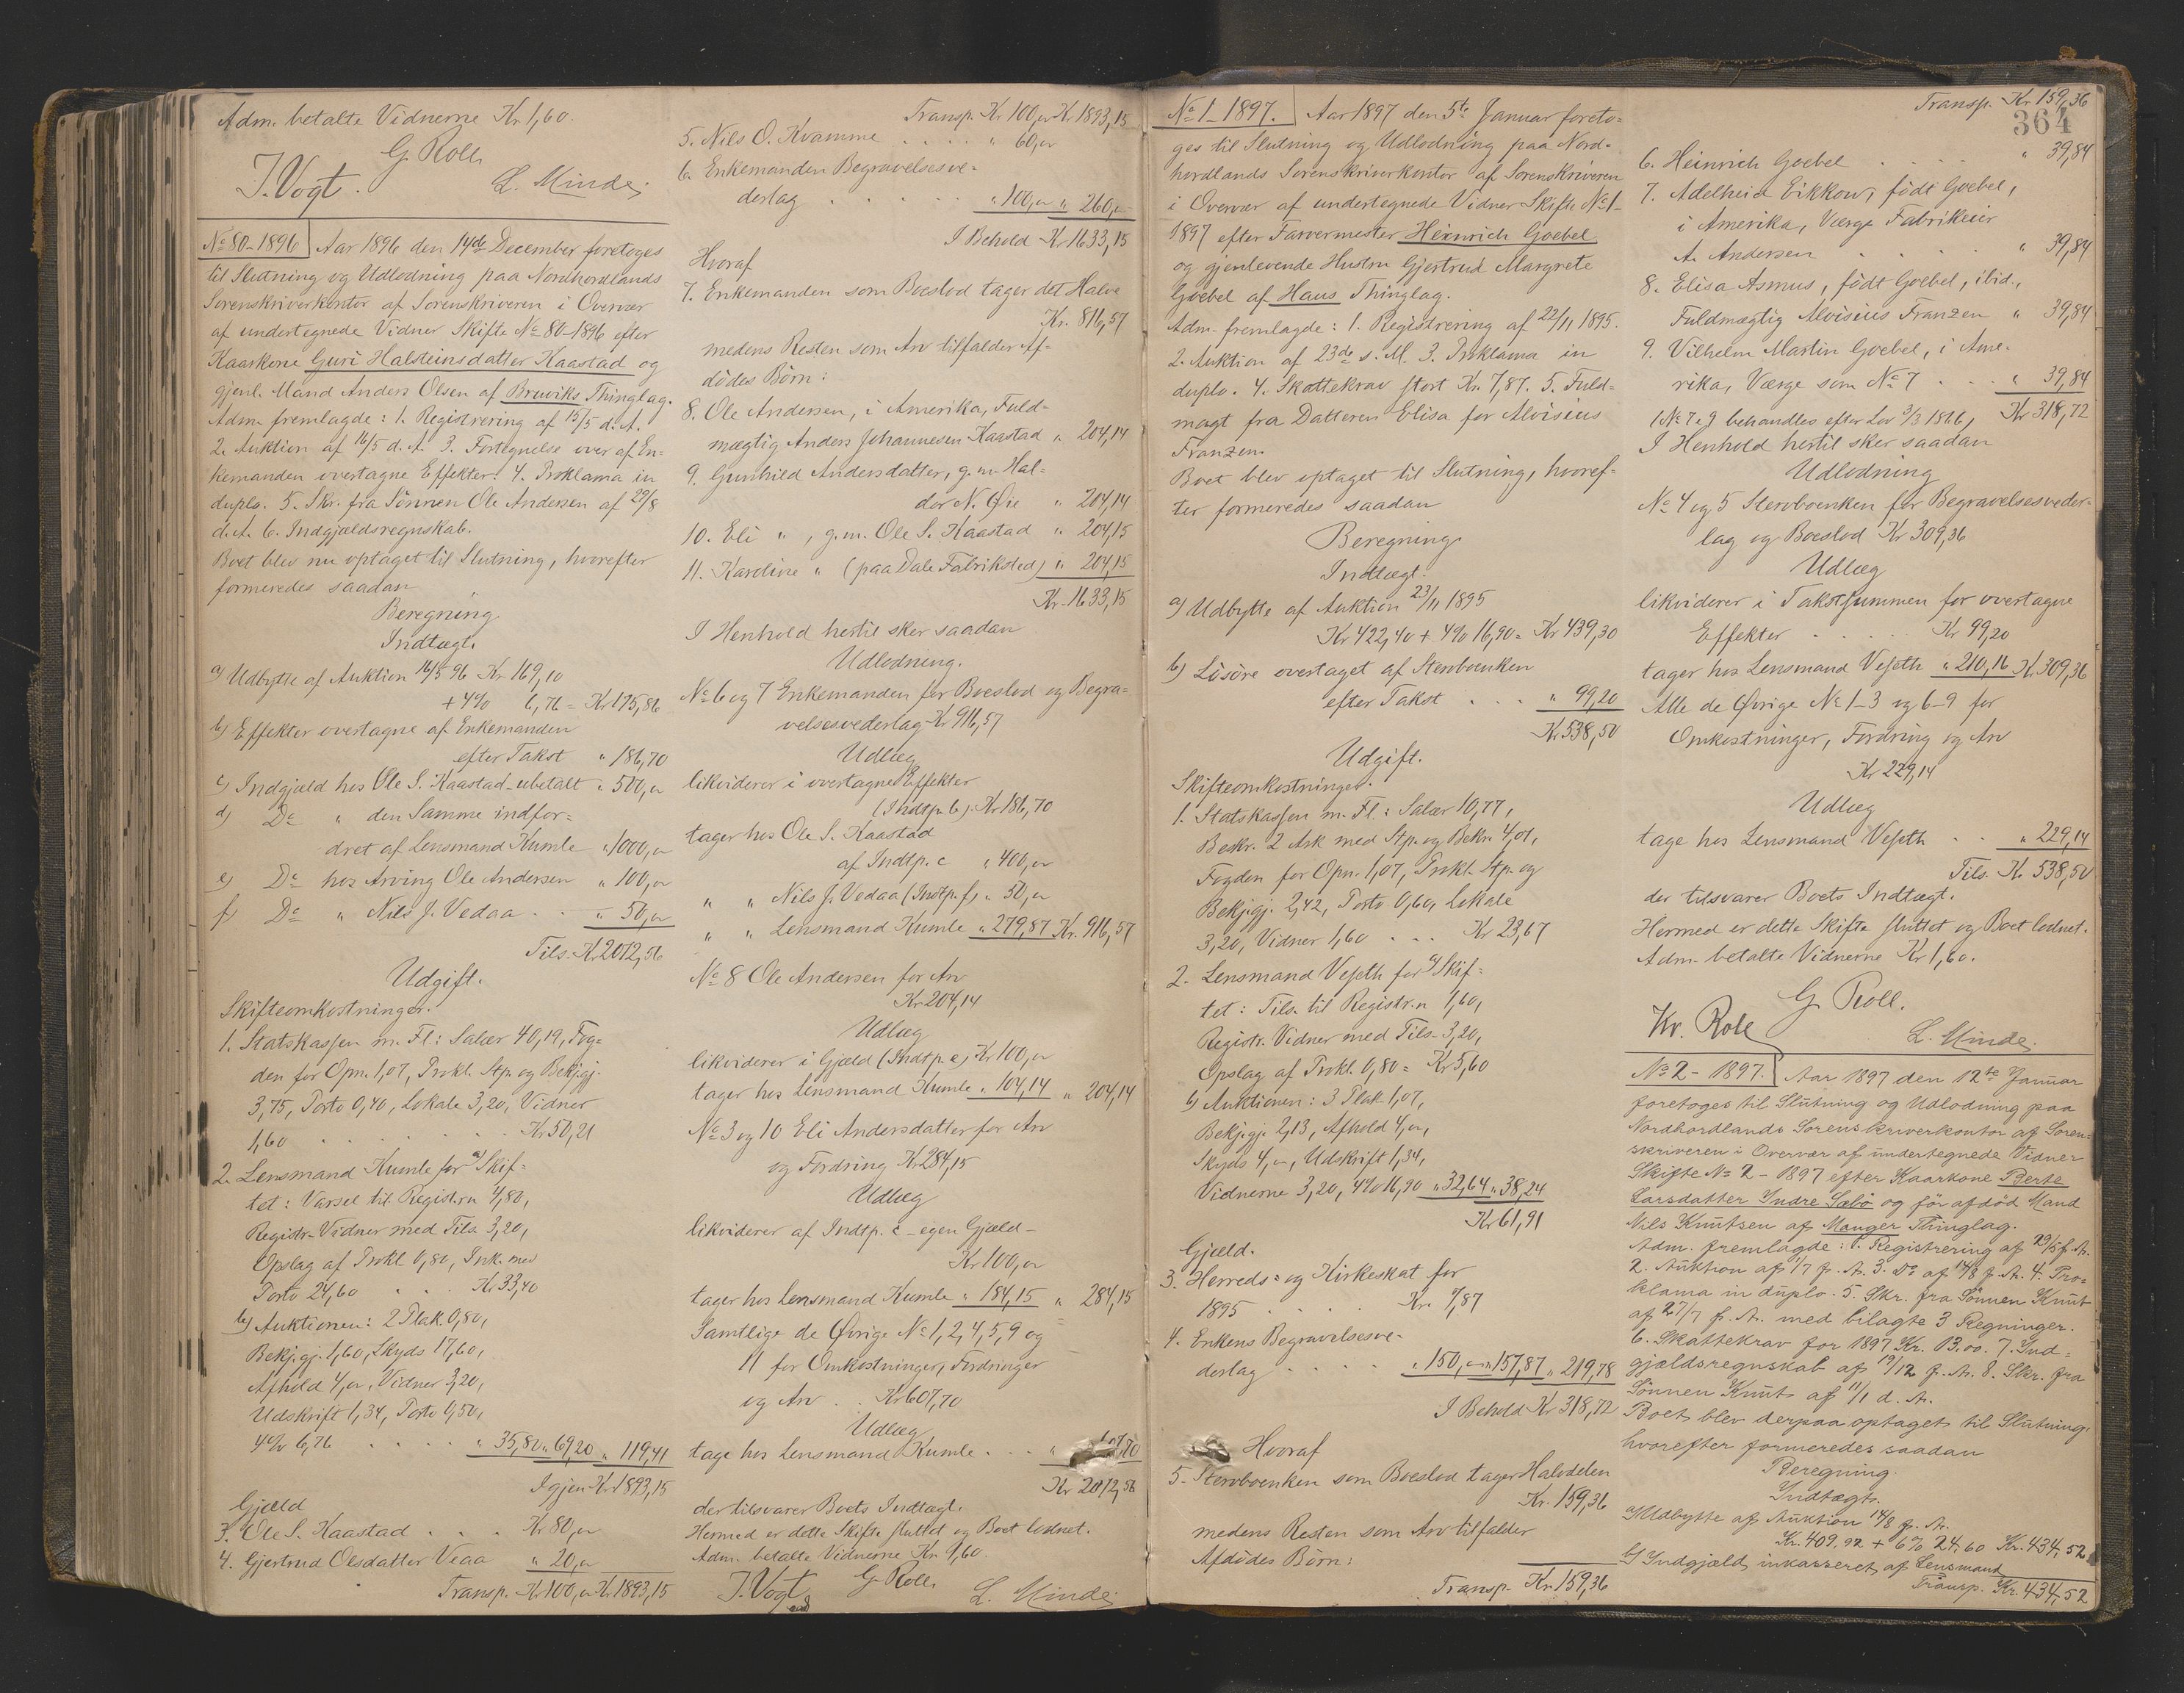 Adm. betalte Vidnerne Kr 1,60.
G Roll.
J. Vogt. L. Minde.
No 80-1896 Aar 1896 den 14de December foretoges
til Slutning og Udlodning paa Nordhordlands
Sorenskriverkontor af Sorenskriveren i Overvær
af undertegnede Vidner Skifte No 80-1896 efter
Kaarkone Guri Halsteinsdatter Kaastad og
gjenl. Mand Anders Olsen af Bruviks Thinglag.
Adm. fremlagde: 1. Registrering af 15/5 d. A.
2. Auktion af 16/5 d. A. 3. Fortegnelse over af En-
kemanden overtagne Effekter. 4. Proklama in
duplo. 5. Skr. fra Sønnen Ole Andersen af 29/8
d. A. 6. Indgjældsregnskab.
Boet blev nu optaget til Slutning, hvorefter
formeredes saadan
Beregning
Indtægt.
a) Udbytte af Auktion 16/5 96 Kr 169,10
+ 4% 6,76 = Kr 175,86
b) Effekter overtagne af Enkemanden
efter Takst " 186,70
c) Indgjæld hos Ole S. Kaastad - ubetalt " 500,-
d) Do " den Samme indfor-
dret af Lensmand Kumle " 1000,-
e) Do hos Arving Ole Andersen " 100,-
f) Do " Nils J. Vedaa . . " 50,-
Tils. Kr 2012,56
Udgift.
Skifteomkostninger.
1. Statskassen m. Fl: Salær 40,19, Fog-
den for Opn. 1,07, Prokl. Stp. og Bekj.gj.
3,75, Porto 0,40, Lokale 3,20, Vidner
1,60 . . . . . . Kr 50,21
2. Lensmand Kumle for a) Skif-
tet: Varsel til Registr.n 4,80,
Registr. Vidner med Tils. 3,20,
Opslag af Prokl. 0,80, Ink. med
Porto 24,60 . . Kr 33,40
b) Auktionen: 2 Plak. 0,80,
Bekj.gj. 1,60, Skyds 17,60,
Afhold 4,-, Vidner 3,20,
Udskrift 1,34, Porto 0,50,
4% 6,76 . . . . " 35,80 " 69,20 " 119,41
Igjen Kr 1893,15
Gjæld
3. Ole S. Kaastad . . . Kr 80,-
4. Gjertrud Olsdatter Veaa " 20,-
Transp. Kr 100,- Kr 1893,15
Transp. Kr 100,- Kr 1893,15
5. Nils O. Kvamme . . . . " 60,-
6. Enkemanden Begravelsesve-
derlag . . . . . " 100,- " 260,-
I Behold Kr 1633,15
Hvoraf
7. Enkemanden som Boeslod tager det Halve
Kr. 816,57
medens Resten som Arv tilfalder Af-
dødes Børn:
8. Ole Andersen, i Amerika, Fuld-
mægtig Anders Johannesen Kaastad " 204,14
9. Gunhild Andersdatter, g. m. Hal-
dor N. Øie " 204,14
10. Eli " , g. m. Ole S. Kaastad " 204,15
11. Karoline " (paa Dale Fabriksted) " 204,15
Kr. 1633,15
I Henhold hertil sker saadan
Udlodning.
No 6 og 7 Enkemanden for Boeslod og Begra-
velsesvederlag Kr 916,57
Udlæg
likviderer i overtagne Effekter
(Indtp. b). Kr 186,70
tager hos Ole S. Kaastad
af Indtp. c " 400,-
" " Nils J. Vedaa (Indtp. f) " 50,-
" " Lensmand Kumle " 279,87 Kr. 916,57
No 8 Ole Andersen for Arv
Kr. 204,14
Udlæg
likviderer i Gjæld (Indtp. e) Kr 100,-
tager hos Lensmand Kumle " 104,14 " 204,14
No 3 og 10 Eli Andersdatter for Arv
og Fordring Kr 284,15
Udlæg
likviderer af Indtp. c - egen Gjæld -
Kr 100,-
tager hos Lensmand Kumle " 184,15 " 284,15
Samtlige de Øvrige No 1, 2, 4, 5, 9 og
11 for Omkostninger, Fordringer
og Arv . . Kr 607,70
Udlæg
tage hos Lensmand Kumle . . . "
Kr 2012,56
der tilsvarer Boets Indtægt.
Hermed er dette Skifte sluttet og Boet lodnet.
Adm. betalte Vidnerne Kr. 1,60.
J. Vogt G. Roll. L. Minde.
No 1-1897. Aar 1897 den 5te Januar foreto-
ges til Slutning og Udlodning paa Nord-
hordlands Sorenskriverkontor af Sorenskriveren
i Overvær af undertegnede Vidner Skifte No 1-
1897 efter Farvermester Heinrich Goebel
og gjenlevende Hustru Gjertrud Margrete
Goebel af Haus Thinglag.
Adm. fremlagde: 1. Registrering af 22/11 1895.
2. Auktion af 23de s. M. 3. Proklama in
duplo. 4. Skattekrav stort Kr. 7,87. 5. Fuld-
magt fra Datteren Elisa for Aloisius
Franzen.
Boet blev optaget til Slutning, hvoref-
ter formeredes saadan
Beregning
Indtægt.
a) Udbytte af Auktion 23/11 1895
Kr 422,40 + 4% 16,90 = Kr 439,30
b) Løsøre overtaget af Stervboenken
efter Takst . . . " 99,20
Kr. 538,50
Udgift.
Skifteomkostninger.
1. Statskassen m. Fl.: Salær 10,77,
Beskr. 2 Ark med Stp. og Bekr. 4,01,
Fogden for Opn. 1,07, Prokl. Stp. og
Bekj.gj. 2,42, Porto 0,60, Lokale
3,20, Vidner 1,60 . . . Kr 23,67
2. Lensmand Veseth for a) Skif-
tet: Tils. til Registr.n 1,60,
Registr. Vidner med Tils. 3,20,
Opslag af Prokl. 0,80 = Kr 5,60
b) Auktionen: 3 Plak. 1,07,
Bekj.gj. 2,13, Afhold 4,-,
Skyds 4,-, Udskrift 1,34,
Vidnerne 3,20, 4% 16,90 " 32,64 " 38,24
Kr 61,91
Gjæld.
3. Herreds- og Kirkeskat for
1895 . . . . . Kr. 7,87
4. Enkens Begravelsesve-
derlag . . . . " 150,- " 157,87 " 219,78
I Behold Kr 318,72
Hvoraf
5. Stervboenken som Boeslod tager Halvdelen
Kr. 159,36
medens Resten som Arv tilfalder
Afdødes Børn:
Transp. Kr. 159,36
Transp. Kr 159,36
364
6. Heinrich Goebel . . . . " 39,84
7. Adelheid Eikkow, født Goebel,
i Amerika, Værge Fabrikeier
A. Andersen . . . . " 39,84
8. Elisa Asmus, født Goebel, ibid.,
Fuldmægtig Aloisius Franzen " 39,84
9. Vilhelm Martin Goebel, i Ame-
rika, Værge som No 7 . . . " 39,84
(No 7 & 9 behandles efter Lov 3/3 1866) Kr 318,72
I Henhold hertil sker saadan
Udlodning
No 4 og 5 Stervboenken for Begravelsesveder-
lag og Boeslod Kr 309,36
Udlæg
likviderer i Takstsummen for overtagne
Effekter . . . . Kr 99,20
tager hos Lensmand Veseth " 210,16 Kr. 309,36
Alle de Øvrige No 1-3 og 6-9 for
Omkostninger, Fordring og Arv
Kr 229,14
Udlæg
tage hos Lensmand Veseth . . " 229,14
Tils. Kr. 538,50
der tilsvarer Boets Indtægt.
Hermed er dette Skifte sluttet og Boet lodnet.
Adm. betalte Vidnerne Kr 1,60.
G. Roll.
Kr. Roll L. Minde.
No 2 - 1897. Aar 1897 den 12te Januar
foretoges til Slutning og Udlodning paa
Nordhordlands Sorenskriverkontor af Soren-
skriveren i Overvær af undertegnede Vidner
Skifte No 2 - 1897 efter Kaarkone Berte
Larsdatter Indre Sæbø og før afdød Mand
Nils Knutsen af Manger Thinglag.
Adm. fremlagde: 1. Registrering af 29/5 f. A.
2. Auktion af 1/7 f. A. 3. Do af 14/8 f. A. 4. Pro-
klama in duplo. 5. Skr. fra Sønnen Knut
af 27/7 f. A. med bilagte 3 Regninger.
6. Skattekrav for 1897 Kr. 13.00. 7. Ind-
gjældsregnskab af 19/12 f. A. 8. Skr. fra
Sønnen Knut af 11/1 d. A.
Boet blev derpaa optaget til Slutning,
hvorefter formeredes saadan
Beregning.
Indtægt.
a) Udbytte af Auktion 14/8 f. A.
Kr. 409.92 + 6% 24.60 Kr. 434,52
b) Indgjæld inkasseret af Lensmand
Transp. Kr. 434,52